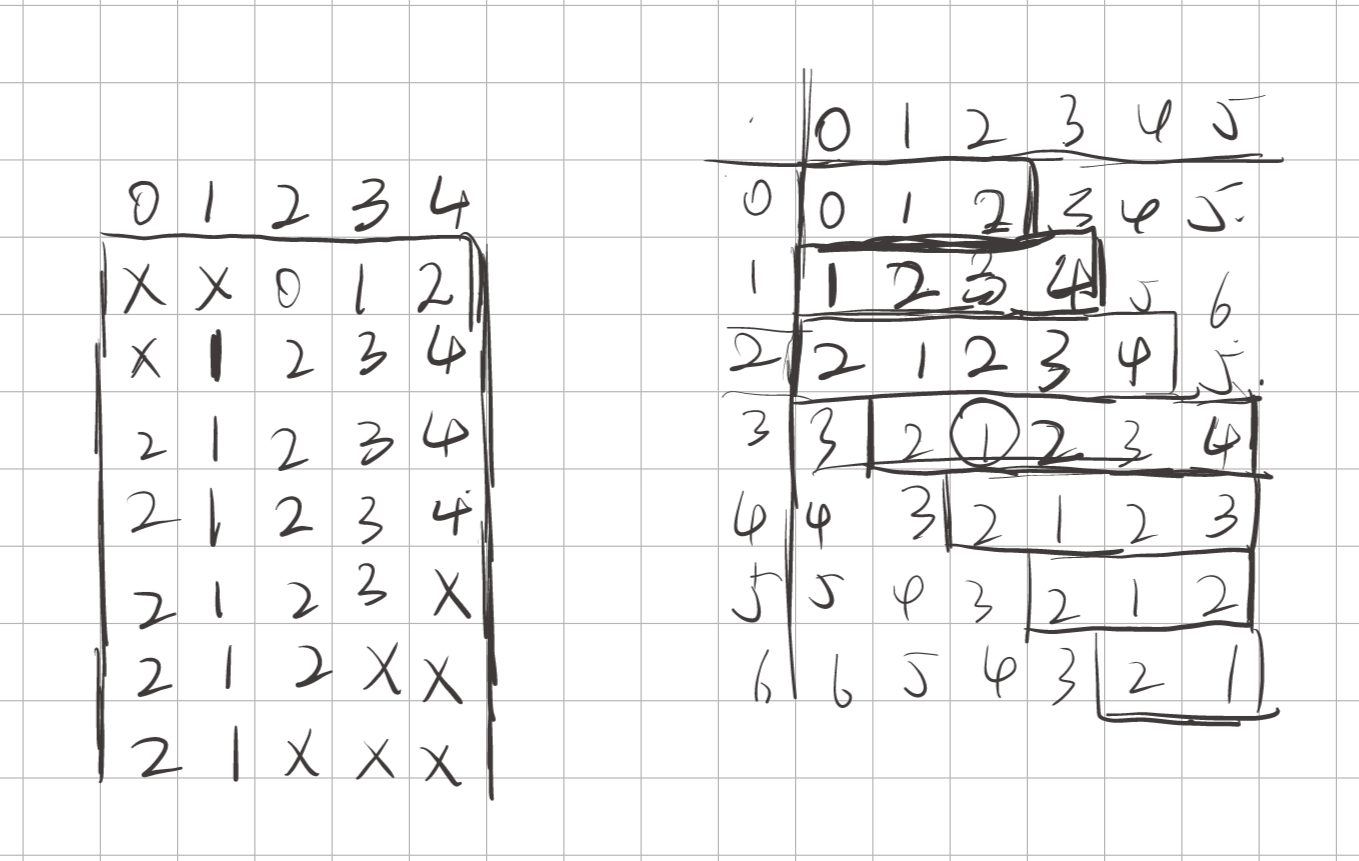 0 1 2 3 4
X X 0 1 2
X 1 2 3 4
2 1 2 3 4
2 1 2 3 4
2 1 2 3 X
2 1 2 X X
2 1 X X X
0 1 2 3 4 5
0 0 1 2 3 4 5.
1 1 2 3 4 5 6
2 2 1 2 3 4 5.
3 3 2 1 2 3 4
4 4 3 2 1 2 3
5 5 4 3 2 1 2
6 6 5 4 3 2 1